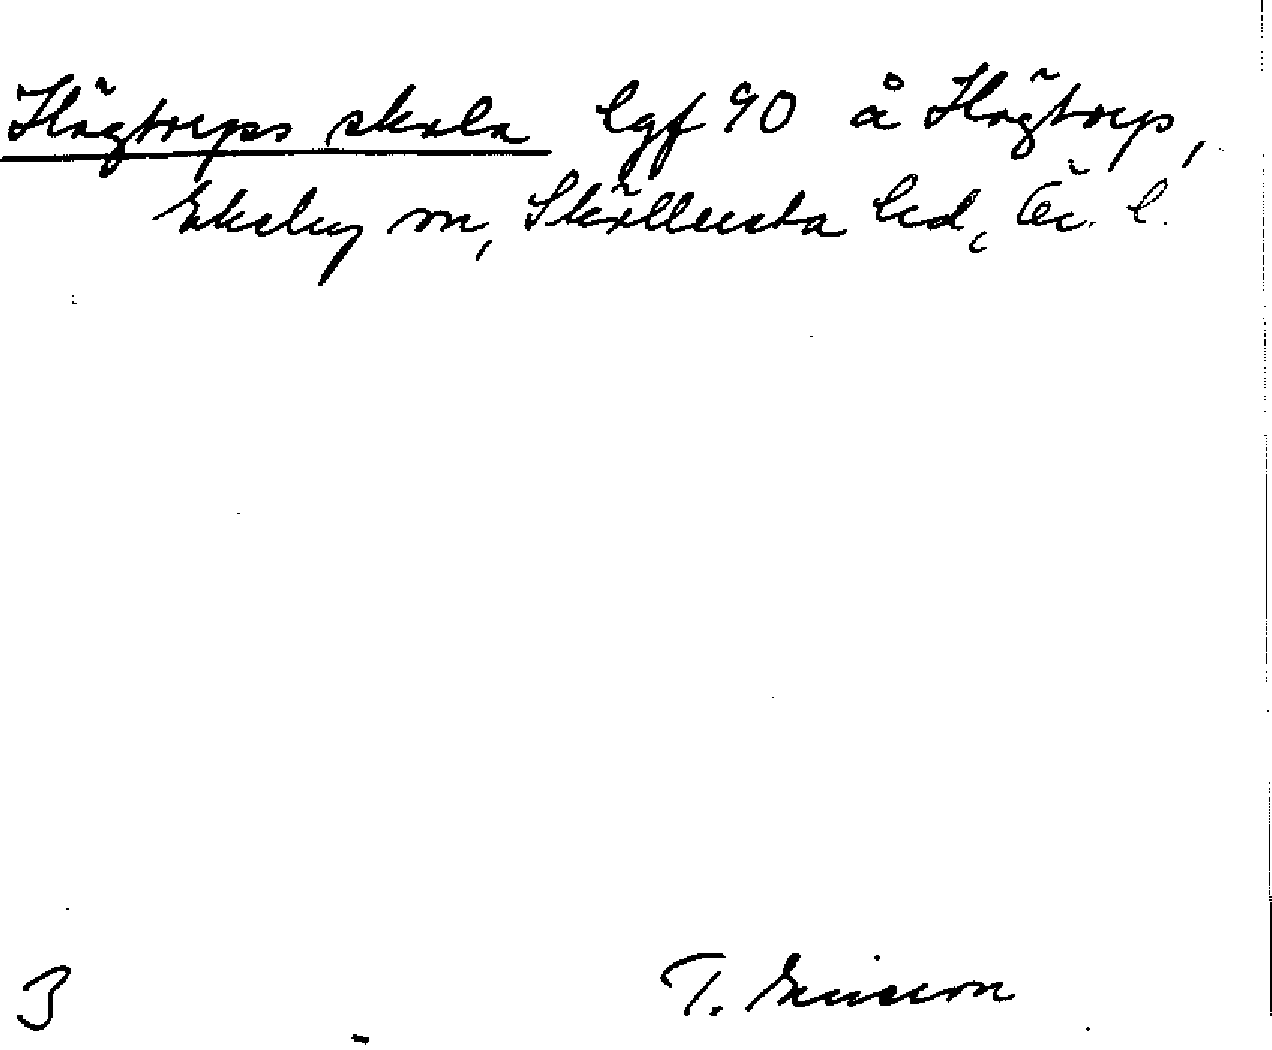 Högtorps skola lgf 90 å Högtorp,
Ekeby sn, Sköllersta hd, Ör. l.
3 T. Ericson